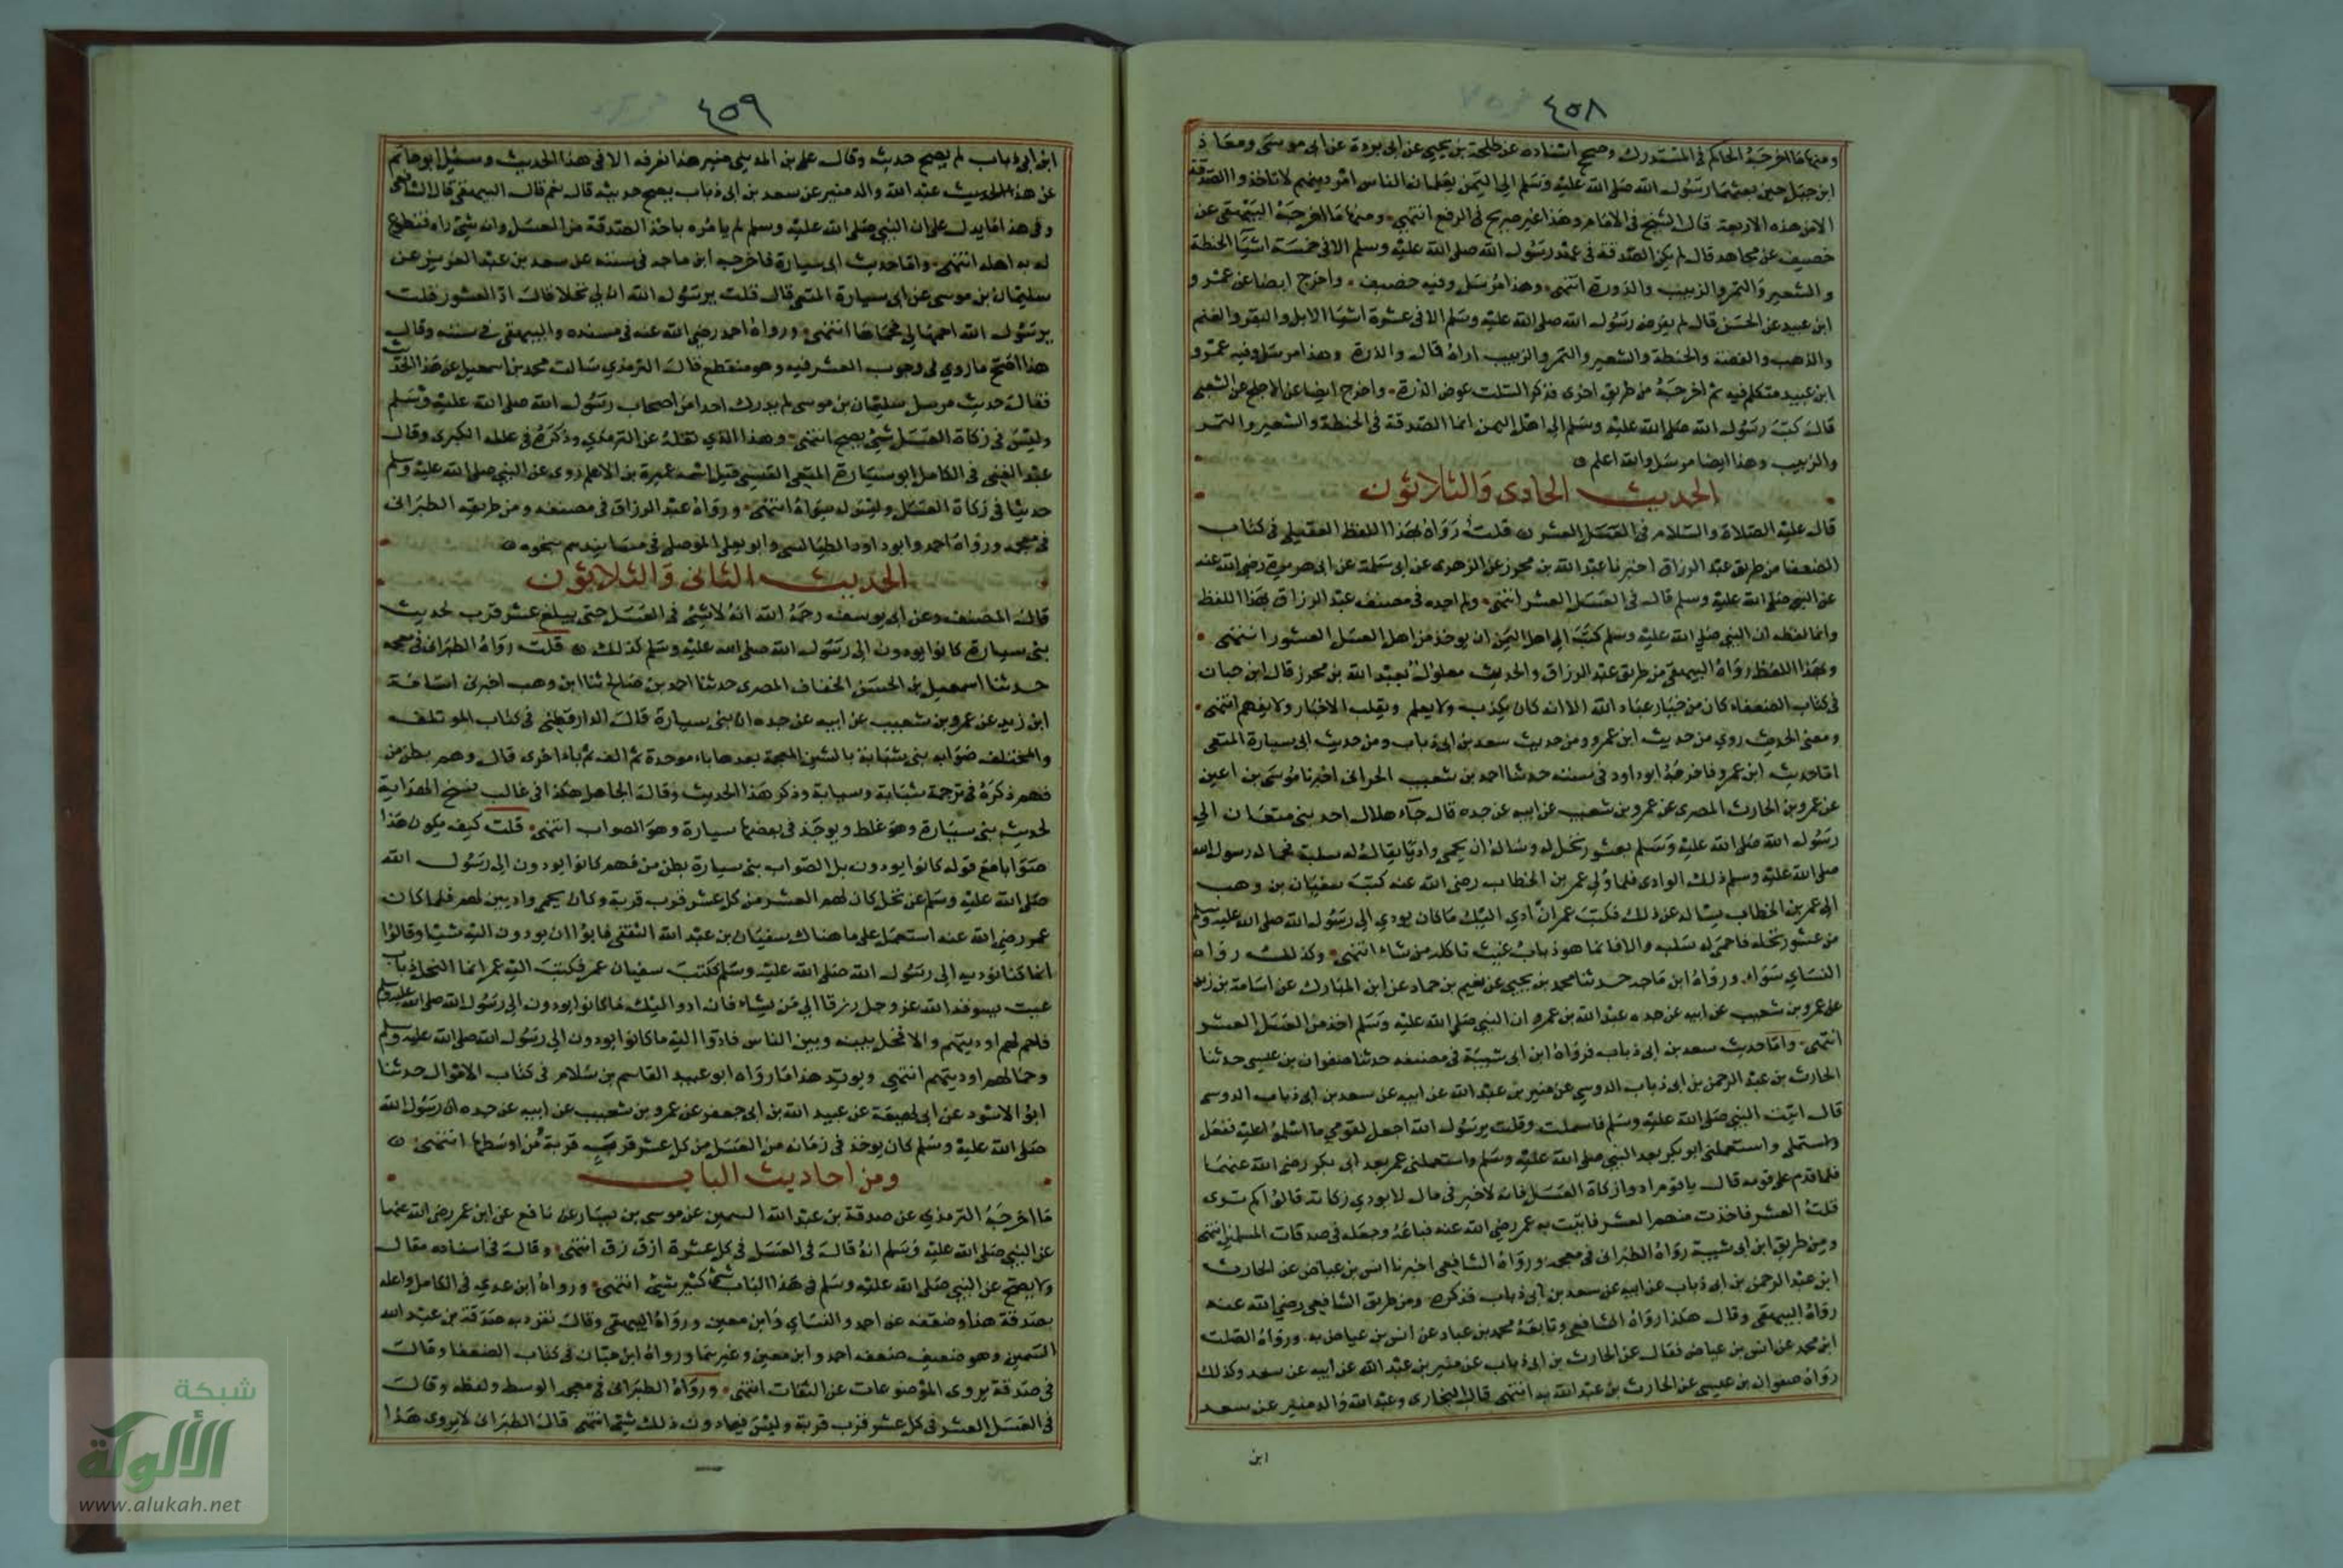 ٤٥٨
ومنها ما اخرجه الحاكم في المستدرك وصحح اسناده عن طلحة بن يحيى عن ابى بردة عن ابى موسى ومعاذ
ابن جبل حين بعثهما رسول الله صلى الله عليه وسلم الى اليمن يعلمان الناس امر دينهم لا تاخذوا الصدقة
الا من هذه الاربعة قال الشيخ فى الامام وهذا غير صريح فى الرفع انتهى ومنها ما اخرجه البيهقى عن
خصيف عن مجاهد قال لم يكن الصدقة فى عهد رسول الله صلى الله عليه وسلم الا فى خمسة اشيآ الحنطة
والشعير والتمر والزبيب والذورة انتهى وهذا مرسل وفيه خصيف واخرج ايضا عن عمرو
ابن عبيد عن الحسن قال لم يفرض رسول الله صلى الله عليه وسلم الا فى عشرة اشيا الابل والبقر والغنم
والذهب والفضة والحنطة والشعير والتمر والزبيب اراه قال والذرة وهذا مرسل وفيه عمرو
ابن عبيد متكلم فيه ثم اخرجه من طريق اخرى فذكر السلت عوض الذرة واخرج ايضا عن الاجلح عن الشعبى
قال كتب رسول الله صلى الله عليه وسلم الى اهل اليمن انما الصدقة فى الحنطة والشعير والتمر
والزبيب وهذا ايضا مرسل والله اعلم
الحديث الحادى والثلاثون
قال عليه الصلاة والسلام فى العسل العشر قلت رواه بهذا اللفظ العقيلى فى كتاب
الضعفا من طريق عبد الرزاق اخبرنا عبد الله بن محرز عن الزهرى عن ابى سلمة عن ابى هريرة رضى الله عنه
عن النبى صلى الله عليه وسلم قال فى العسل العشر انتهى ولم اجده فى مصنف عبد الرزاق بهذا اللفظ
وانما لفظه ان النبى صلى الله عليه وسلم كتب الى اهل اليمن ان يوخذ من اهل العسل العشور انتهى
وبهذا اللفظ رواه البيهقى من طريق عبد الرزاق والحديث معلول بعبد الله بن محرز قال ابن حبان
فى كتاب الضعفاء كان من خيار عباد الله الا انه كان يكذب ولا يعلم ويقلب الاخبار ولا يفهم انتهى
ومعنى الحديث روي من حديث ابن عمرو ومن حديث سعد بن ابى ذباب ومن حديث ابى سيارة المتعى
اما حديث ابن عمرو فاخرجه ابو داود فى سننه حدثنا احمد بن شعيب الحرانى اخبرنا موسى بن اعين
عن عمرو بن الحارث المصرى عن عمرو بن شعيب عن ابيه عن جده قال جآء هلال احد بنى متعان الي
رسول الله صلى الله عليه وسلم بعشور نحل له وساله ان يحمى واديا يقال له سلبة فحما له رسول الله
صلى الله عليه وسلم ذلك الوادى فلما ولى عمر بن الخطاب رضى الله عنه كتب سفيان بن وهب
الى عمر بن الخطاب يساله عن ذلك فكتب عمر ان ادي اليك ما كان يودي الى رسول الله صلى الله عليه وسلم
من عشور نحله فاحم له سلبه والا فانما هو ذباب غيث ياكله من شاء انتهى وكذلك رواه
النساي سواء ورواه ابن ماجه حدثنا محمد بن يحيى عن نعيم بن حماد عن ابن المبارك عن اسامة بن زيد
عن عمرو بن شعيب عن ابيه عن جده عبد الله بن عمرو ان النبى صلى الله عليه وسلم اخذ من العسل العشر
انتهى واما حديث سعد بن ابى ذباب فرواه ابن ابى شيبة فى مصنفه حدثنا صفوان بن عيسى حدثنا
الحارث بن عبد الرحمن بن ابى ذباب الدوسى عن منير بن عبد الله عن ابيه عن سعد بن ابى ذباب الدوسى
قال اتيت النبى صلى الله عليه وسلم فاسلمت وقلت يرسول الله اجعل لقومي ما اسلموا عليه ففعل
واستعملنى واستعملنى ابو بكر بعد النبى صلى الله عليه وسلم واستعملنى عمر بعد ابى بكر رضى الله عنهما
فلما قدم على قومه قال يا قوم ادوا زكاة العسل فانه لا خير فى مال لا يودي زكاته قالوا كم ترى
قلت العشر فاخذت منهم العشر فاتيت به عمر رضى الله عنه فباعه وجعله فى صدقات المسلمين انتهى
ومن طريق ابن ابى شيبة رواه الطبرانى فى معجمه ورواه الشافعى اخبرنا انس بن عياض عن الحارث
ابن عبد الرحمن بن ابى ذباب عن ابيه عن سعد بن ابى ذباب فذكره ومن طريق الشافعى رضى الله عنه
رواه البيهقى وقال هكذا رواه الشافعى وتابعه محمد بن عباد عن انس بن عياض به ورواه الصلت
ابن محمد عن انس بن عياض فقال عن الحارث بن ابى ذباب عن منير بن عبد الله عن ابيه عن سعد وكذلك
رواه صفوان بن عيسى عن الحارث بن عبد الله به انتهى قال البخارى وعبد الله والد منير عن سعد
ابن
٤٥٩
ابن ابى ذباب لم يصح حديثه وقال على بن المديني منير هذا لا نعرفه الا فى هذا الحديث وسئل ابو حاتم
عن هذا الحديث عبد الله والد منير عن سعد بن ابى ذباب يصح حديثه قال نعم قال البيهقى قال الشافعى
وفى هذا ما يدل على ان النبى صلى الله عليه وسلم لم يامره باخذ الصدقة من العسل وانه شئ راه فتطوع
له به اهله انتهى واما حديث ابى سيارة فاخرجه ابن ماجه فى سننه عن سعد بن عبد العزيز عن
سليمان بن موسى عن ابى سيارة المتعى قال قلت يرسول الله ان لي نحلا قال اد العشور قلت
يرسول الله احمها لي فحماها انتهى ورواه احمد رضى الله عنه فى مسنده والبيهقى فى سننه وقال
هذا اصح ما روي فى وجوب العشر فيه وهو منقطع قال الترمذي سالت محمد بن اسمعيل عن هذا الحديث
فقال حديث مرسل سليمان بن موسى لم يدرك احدا من اصحاب رسول الله صلى الله عليه وسلم
وليس فى زكاة العسل شئ يصح انتهى وهذا الذي نقله عن الترمذي وذكره فى علله الكبرى وقال
عبد الغنى فى الكامل ابو سيارة المتعى القيسى قيل اسمه عميرة بن الاعلم روى عن النبى صلى الله عليه وسلم
حديثا فى زكاة العسل وليس له سواه انتهى ورواه عبد الرزاق فى مصنفه ومن طريقه الطبرانى
فى معجمه ورواه احمد وابو داود الطيالسى وابو يعلى الموصلى فى مسانيدهم بنحوه
الحديث الثانى والثلاثون
قال المصنف وعن ابى يوسف رحمه الله انه لا شئ فى العسل حتى يبلغ عشر قرب لحديث
بنى سيارة كانوا يودون الى رسول الله صلى الله عليه وسلم كذلك قلت رواه الطبرانى فى معجمه
حدثنا اسمعيل بن الحسن الخفاف المصرى حدثنا احمد بن صالح ثنا ابن وهب اخبرنى اسامة
ابن زيد عن عمرو بن شعيب عن ابيه عن جده ان بنى سيارة قال الدارقطنى فى كتاب الموتلف
والمختلف صوابه بنى شبابة بالشين المعجمة بعدها باء موحدة ثم الف ثم باء اخرى قال وهم بطن من
فهم ذكره فى ترجمة شبابة وسيابة وذكر هذا الحديث وقال الجاهل هكذا فى غالب نسخ الهداية
لحديث بنى سيارة وهو غلط ويوجد فى بعضها سيارة وهو الصواب انتهى قلت كيف يكون هذا
صوابا مع قوله كانوا يودون بل الصواب بنى سيارة بطن من فهم كانوا يودون الى رسول الله
صلى الله عليه وسلم عن نحل كان لهم العشر من كل عشر قرب قربة وكان يحمى واديين لهم فلما كان
عمر رضى الله عنه استعمل على ما هناك سفيان بن عبد الله الثقفى فابوا ان يودون اليه شيا وقالوا
انما كنا نوديه الى رسول الله صلى الله عليه وسلم فكتب سفيان عمر فكتب اليه عمر انما النحل ذباب
غيث يسوقه الله عز وجل رزقا الى من يشاء فان ادوا اليك ما كانوا يودون الى رسول الله صلى الله عليه وسلم
فاحم لهم اوديتهم والا فخل بينه وبين الناس فادوا اليه ما كانوا يودون الى رسول الله صلى الله عليه وسلم
وحما لهم اوديتهم انتهى ويويد هذا ما رواه ابو عبيد القاسم بن سلام فى كتاب الاموال حدثنا
ابو الاسود عن ابى لهيعة عن عبيد الله بن ابى جعفر عن عمرو بن شعيب عن ابيه عن جده ان رسول الله
صلى الله عليه وسلم كان يوخذ فى زمانه من العسل من كل عشر قرب قربة من اوسطها انتهى
ومن احاديث الباب
ما اخرجه الترمذي عن صدقة بن عبد الله السمين عن موسى بن يسار عن نافع عن ابن عمر رضى الله عنهما
عن النبى صلى الله عليه وسلم انه قال فى العسل فى كل عشرة ازق زق انتهى وقال فى اسناده مقال
ولا يصح عن النبى صلى الله عليه وسلم فى هذا الباب كثير شئ انتهى ورواه ابن عدي فى الكامل واعله
بصدقة هذا وضعفه عن احمد والنساي وابن معين ورواه البيهقى وقال تفرد به صدقة بن عبد الله
السمين وهو ضعيف ضعفه احمد وابن معين وغيرهما ورواه ابن حبان فى كتاب الضعفا وقال
فى صدقة يروى الموضوعات عن الثقات انتهى ورواه الطبرانى فى معجمه الوسط ولفظه وقال
فى العسل العشر فى كل عشر قرب قربة وليس فيما دون ذلك شئ انتهى قال الطبرانى لا يروى هذا
شبكة
الألوكة
www.alukah.net